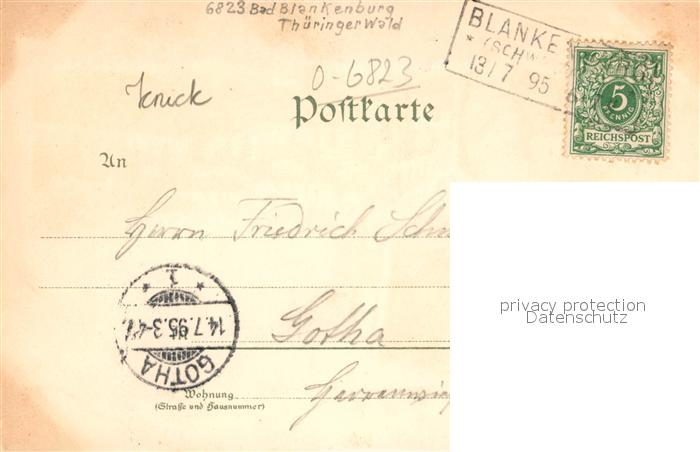 6823 Bad Blankenburg
Thüringer Wald
BLANKE
* (SCHW
13/7 95
0-6823
knick
Postkarte
5
PFENNIG
REICHSPOST
An
Herrn Friedrich
privacy protection
Datenschutz
1
14.7.95.3-4
GOTHA
Gotha
Wohnung
(Straße und Hausnummer)